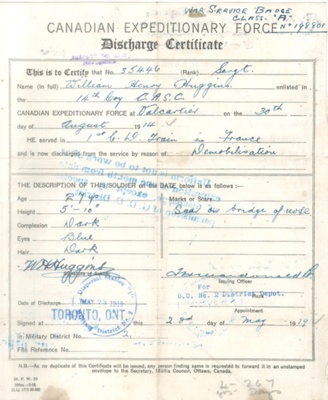 War Service Badge
Class "A"
No 198901
CANADIAN EXPEDITIONARY FORCE
Discharge Certificate
This is to Certify that No. 35446 (Rank) Sergt.
Name (in full) William Henry Huggins enlisted in
the 14th Coy C.A.S.C.
CANADIAN EXPEDITIONARY FORCE at Valcartier on the 30th
day of August 1914
HE served in 1st C. D. Train in France
and is now discharged from the service by reason of Demobilisation
THE DESCRIPTION OF THIS SOLDIER on the DATE below is as follows:-
Age 29 yrs
Height 5'-10"
Complexion Dark
Eyes Blue
Hair Dark
Marks or Scars
Scar on bridge of nose
W H Huggins
Issuing Officer
For
O.C. No. 2 District Depot.
Appointment
Date of Discharge
MAY 23 1919
TORONTO, ONT.
Signed at
this
May 191
Military District
File Reference No.
N.B.—As no duplicate of this Certificate will be issued, any person finding same is requested to forward it in an unstamped
envelope to the Secretary, Militia Council, Ottawa, Canada.